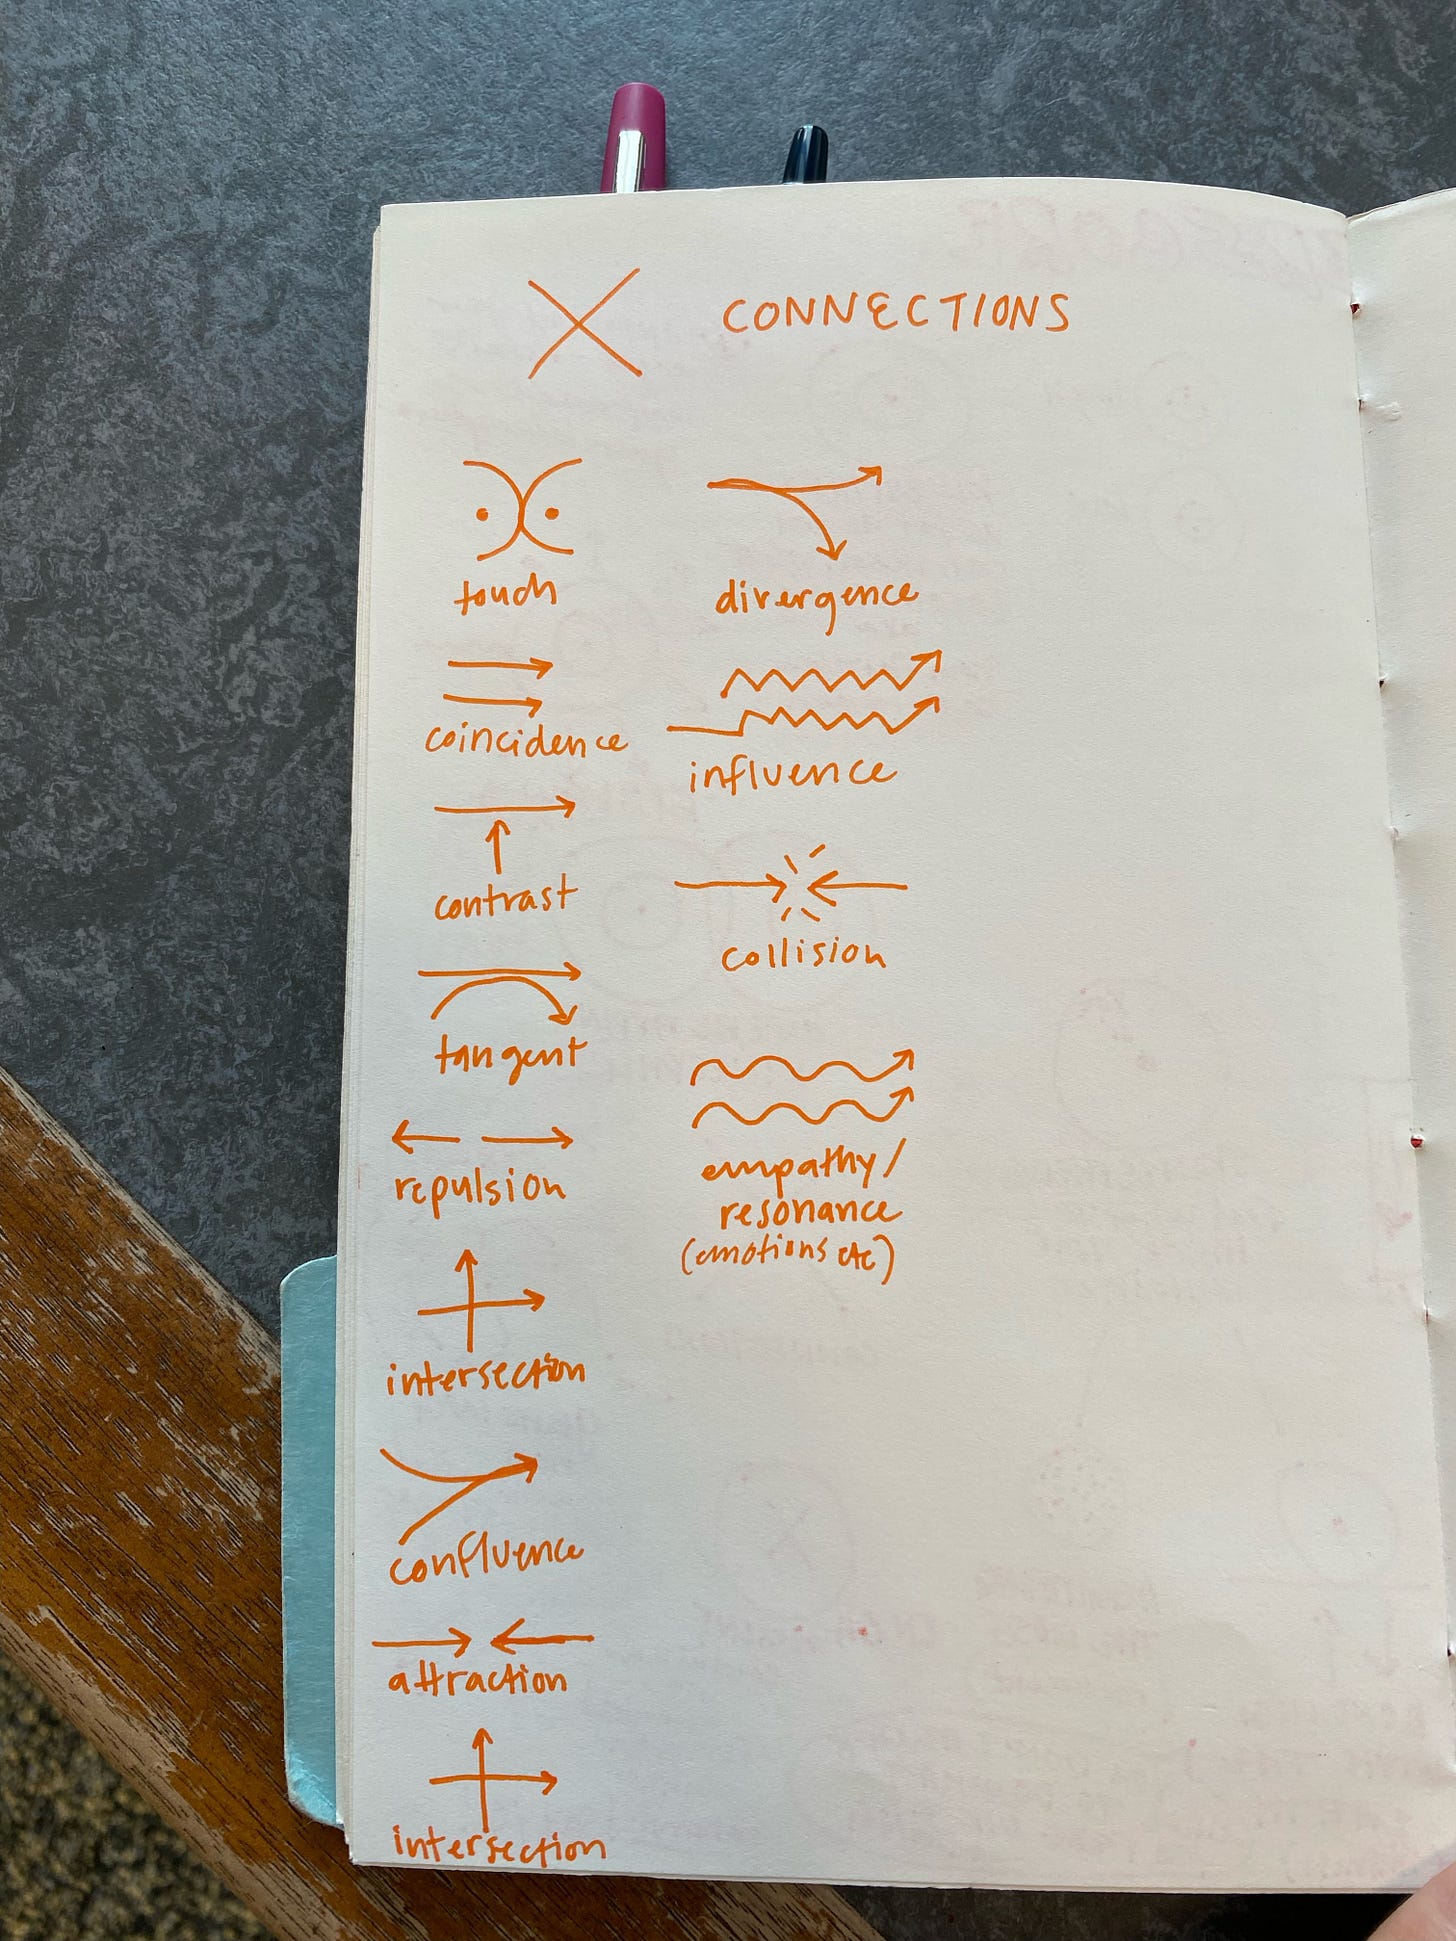 CONNECTIONS
touch
coincidence
contrast
tangent
repulsion
intersection
confluence
attraction
intersection
divergence
influence
collision
empathy/
resonance
(emotions etc)